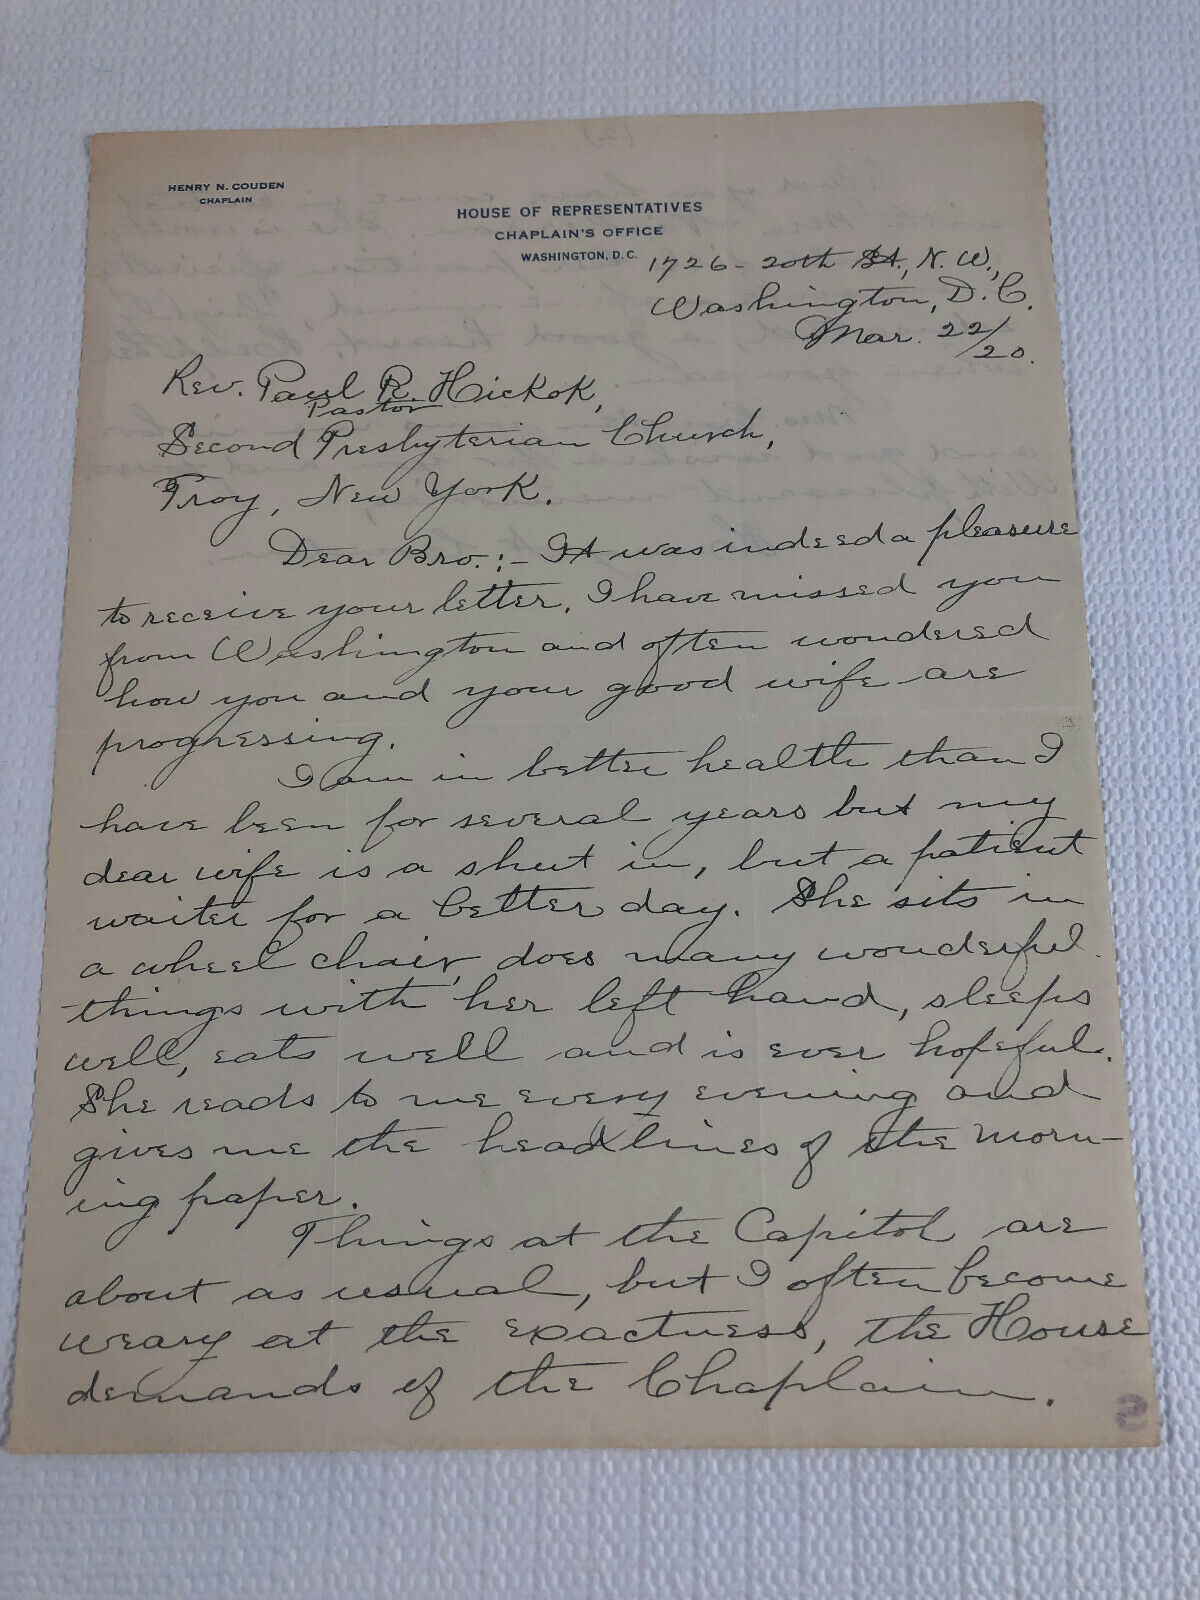 HENRY N. COUDEN
CHAPLAIN
HOUSE OF REPRESENTATIVES
CHAPLAIN'S OFFICE
WASHINGTON, D.C.
1726 - 20th St., N.W.,
Washington, D.C.
Mar. 22/20.
Rev. Paul R. Hickok,
Pastor
Second Presbyterian Church,
Troy, New York.
Dear Bro.:- It was indeed a pleasure
to receive your letter. I have missed you
from Washington and often wondered
how you and your good wife are
progressing.
I am in better health than I
have been for several years but my
dear wife is a shut in, but a patient
waiter for a better day. She sits in
a wheel chair, does many wonderful
things with her left hand, sleeps
well, eats well and is ever hopeful.
She reads to me every evening and
gives me the headlines of the morn-
ing paper.
Things at the Capitol are
about as usual, but I often become
weary at the exactness, the House
demands of the Chaplain.